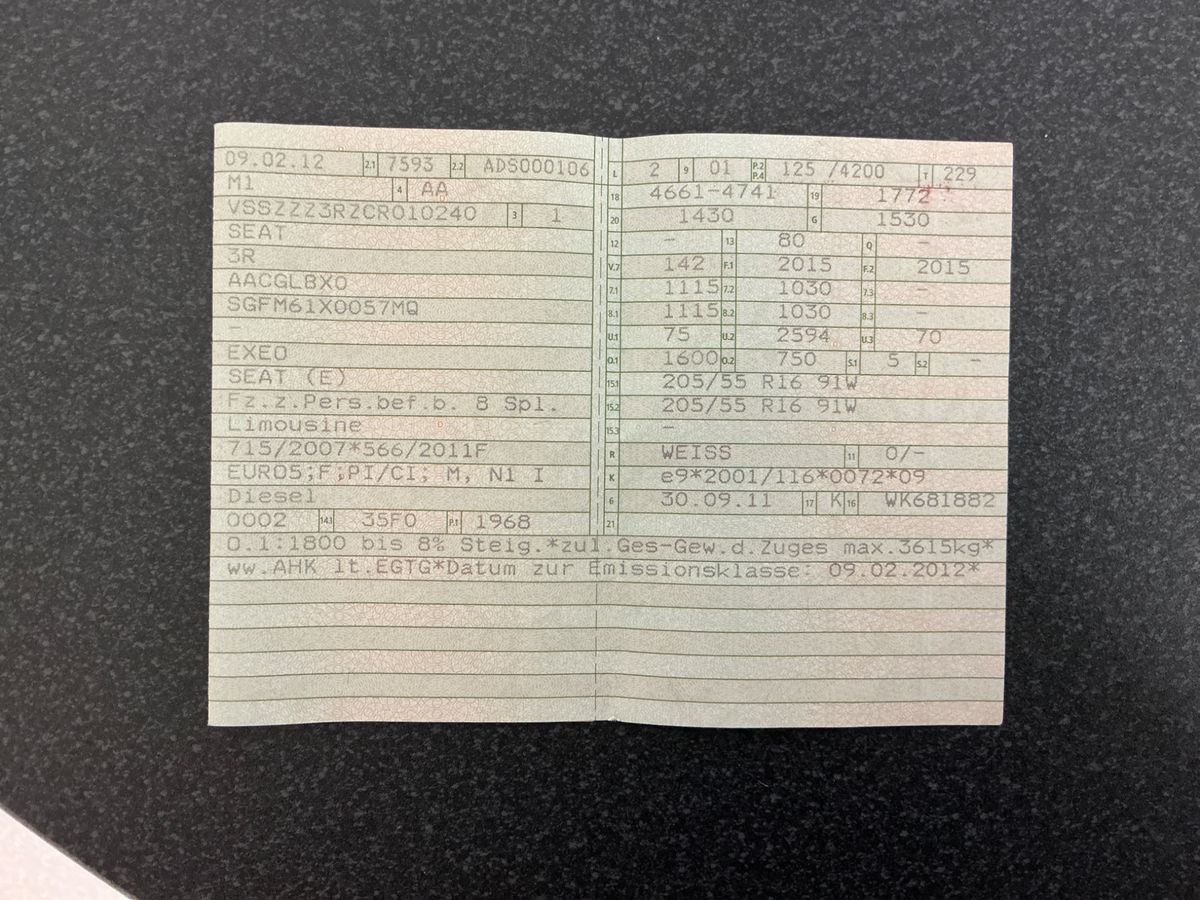 09.02.12 2.1 7593 2.2 ADS000106
M1 4 AA
VSSZZZ3RZCR010240 3 1
SEAT
3R
AACGLBX0
SGFM61X0057MQ
–
EXEO
SEAT (E)
Fz.z.Pers.bef.b. 8 Spl.
Limousine
715/2007*566/2011F
EURO5;F;PI/CI; M, N1 I
Diesel
0002 14.1 35F0 P.1 1968
L 2 9 01 P.2 P.4 125 /4200 T 229
18 4661-4741 19 1772
20 1430 G 1530
12 – 13 80 Q –
V.7 142 F.1 2015 F.2 2015
7.1 1115 7.2 1030 7.3 –
8.1 1115 8.2 1030 8.3 –
U.1 75 U.2 2594 U.3 70
O.1 1600 O.2 750 S.1 5 S.2 –
15.1 205/55 R16 91W
15.2 205/55 R16 91W
15.3 –
R WEISS 11 0/-
K e9*2001/116*0072*09
6 30.09.11 17 K 16 WK681882
21
O.1:1800 bis 8% Steig.*zul.Ges-Gew.d.Zuges max.3615kg*
ww.AHK lt.EGTG*Datum zur Emissionsklasse: 09.02.2012*